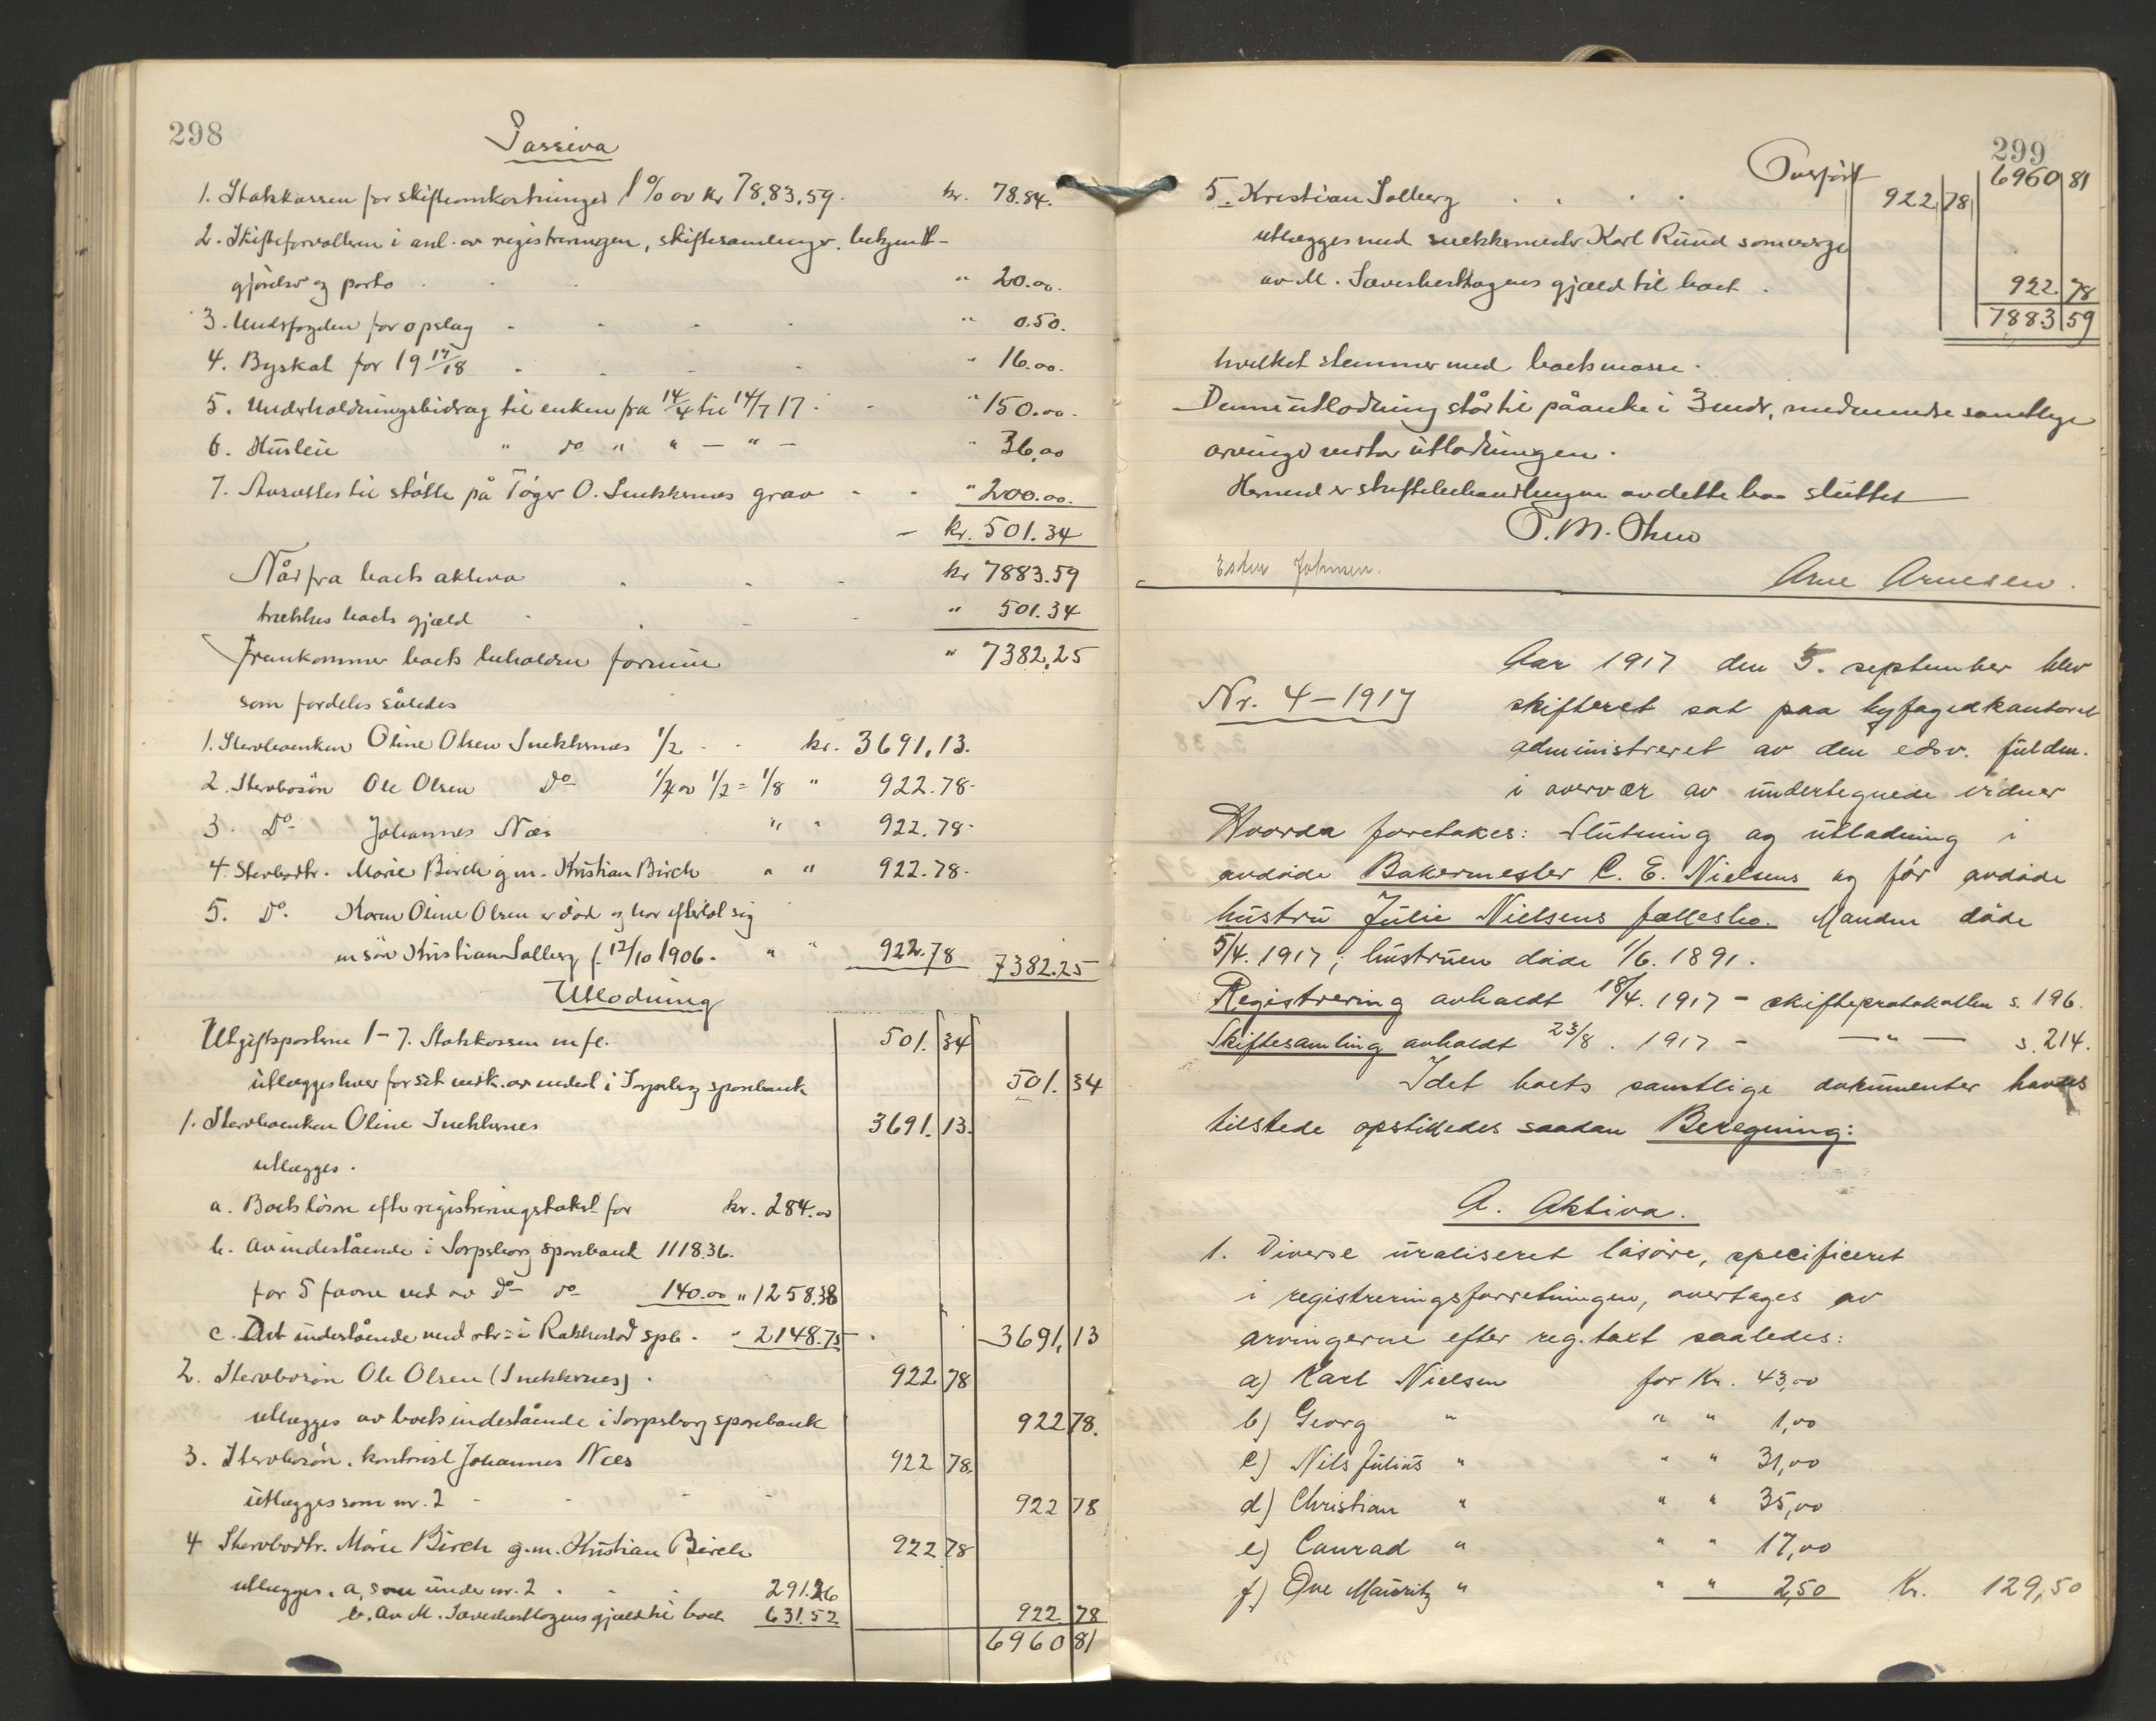 298
Passiva
1. Statskassen for skifteomkostninger 1% av kr 78.83.59. kr. 78.84.
2. Skifteforvalteren i anl. av registreringen, skiftesamlinger, bekjent-
gjørelser og porto " 20.00.
3. Underfogden for opslag " 0.50.
4. Byskat for 19 17/18 " 16.00.
5. Underholdningsbidrag til enken fra 14/4 til 14/7 17. " 150.00.
6. Husleie " do " " — " — " 36.00
7. Avsættes til støtte på Tøger O. Snekkernes grav " 200.00.
- kr. 501.34
Når fra boets aktiva kr 7883.59
trækkes boets gjæld " 501.34
Fremkommer boets beholdne formue " 7382.25
som fordeles således
1. Stervboenken Oline Olsen Snekkernes 1/2 kr. 3691.13.
2. Stervbosøn Ole Olsen Do 1/4 av 1/2 = 1/8 " 922.78.
3. Do Johannes Næs " " 922.78.
4. Stervbodtr. Marie Birch g.m. Kristian Birch " " 922.78.
5. Do. Karen Oline Olsen er død og har efterlat sig
en søn Kristian Solberg f. 12/10 1906. " " 922.78 7382.25
Utlodning
Utgiftsposterne 1-7. Statskassen m.fl. 501. 34
utlægges hver for sit vedk. av indest. i Sarpsborg sparebank 501. 34
1. Stervboenken Oline Snekkernes 3691. 13.
utlægges.
a. Boets løsøre efter registreringstakst for kr. 284.00
b. Av indestående i Sarpsborg sparebank 1118.36.
for 5 favne ved av do do 140.00 " 1258.38
c. Det indestående med rtr. i Rakkestad spb. " 2148.75 3691, 13
2. Stervbosøn Ole Olsen (Snekkernes) 922 78
utlægges av boets indestående i Sarpsborg sparebank 922 78.
3. Stervbosøn, kontorist Johannes Næs 922 78.
utlægges som nr. 2 922 78
4 Stervbodtr. Marie Birch g.m. Kristian Birch 922 78
utlægges. a, som under nr. 2 291.26
b. av M. gjæld til boet 631.52 922 78
6960 81
299
Overført 6960 81
5. Kristian Solberg 922 78
utlægges med snekkermester Karl Ruud som værge
av M. gjæld til boet 922 78
7883 59
hvilket stemmer med boets masse.
Denne utlodning står til påanke i 3 mdr, medmindre samtlige
arvinger vedtar utlodningen.
Hermed er skiftebehandlingen av dette bo sluttet
Arne Arnesen.
Nr. 4-1917
Aar 1917 den 5. september blev
skifteret sat paa byfogedkontoret
administreret av den edsv. fuldm.
i overvær av undertegnede vidner
Hvorda foretokes: Slutning og utlodning i
avdøde Bakermester C. E. Nielsens og før avdøde
hustru Julie Nielsens fællesbo. Manden døde
5/4. 1917; hustruen døde 1/6. 1891.
Registrering avholdt 18/4. 1917 - skifteprotokollen s. 196.
Skiftesamling avholdt 23/8. 1917 - — " — s. 214.
Idet boets samtlige dokumenter havdes
tilstede opstilledes saadan Beregning:
A. Aktiva.
1. Diverse uraliseret løsøre, specificeret
i registreringsforretningen, overtages av
arvingerne efter reg. taxt saaledes:
a) Karl Nielsen for Kr. 43,00
b) Georg " " " 1,00
c) Nils Julius " " " 31,00
d) Christian " " " 35,00
e) Conrad " " " 17,00
f) Ove Mauritz " " " 2,50 Kr. 129,50